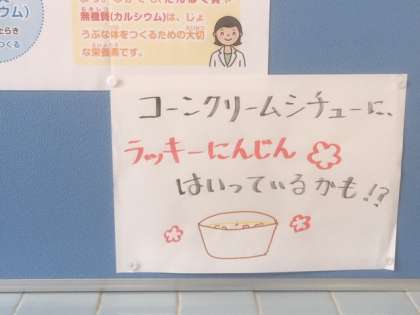 ウム)
たらき
つくる
無機質(カルシウム)は、じょ
うぶな体をつくるための大切
な栄養素です。
コーンクリームシチューに、
ラッキーにんじん
はいっているかも!?